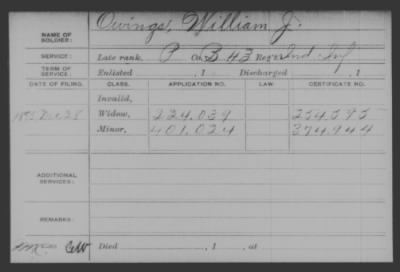 Owings, William J.
NAME OF SOLDIER:
SERVICE: Late rank, P Co. B 43 Reg't Ind. Inf
TERM OF SERVICE: Enlisted , 1 Discharged , 1
DATE OF FILING. CLASS. APPLICATION NO. LAW. CERTIFICATE NO.
Invalid,
Dec 28 Widow, 224.039 254.595
Minor, 401.024 374.944
ADDITIONAL SERVICES:
REMARKS:
Died , 1 , at